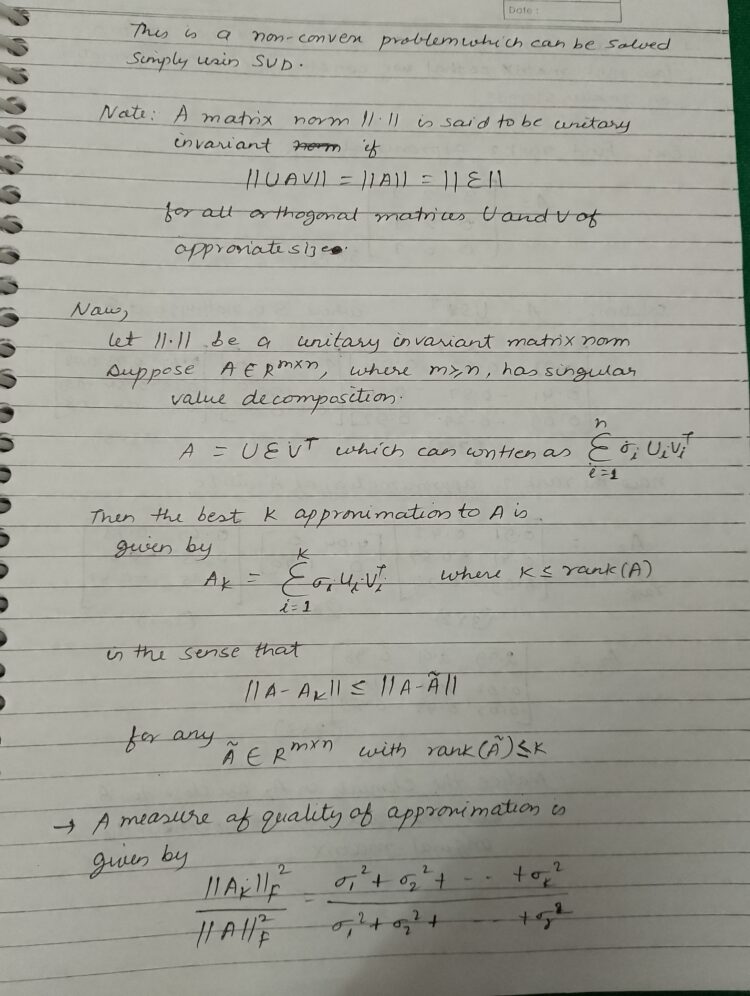 Date :
This is a non-convex problem which can be solved
Simply usin SVD.
Note: A matrix norm ||·|| is said to be unitary
invariant norm if
||UAV|| = ||A|| = ||Σ||
for all orthogonal matrices U and V of
approriate size.
Now,
Let ||·|| be a unitary invariant matrix norm
Suppose A ∈ R^{m×n}, where m≥n, has singular
value decomposition.
A = UΣV^T which can written as Σ_{i=1}^{n} σ_i U_i V_i^T
Then the best K approximation to A is
given by
A_K = Σ_{i=1}^{K} σ_i U_i V_i^T where K ≤ rank(A)
in the sense that
||A - A_K|| ≤ ||A - Ã||
for any
Ã ∈ R^{m×n} with rank(Ã) ≤ K
→ A measure of quality of approximation is
given by
||A_K||_F^2 / ||A||_F^2 = (σ_1^2 + σ_2^2 + - - - + σ_K^2) / (σ_1^2 + σ_2^2 + - - - + σ_r^2)